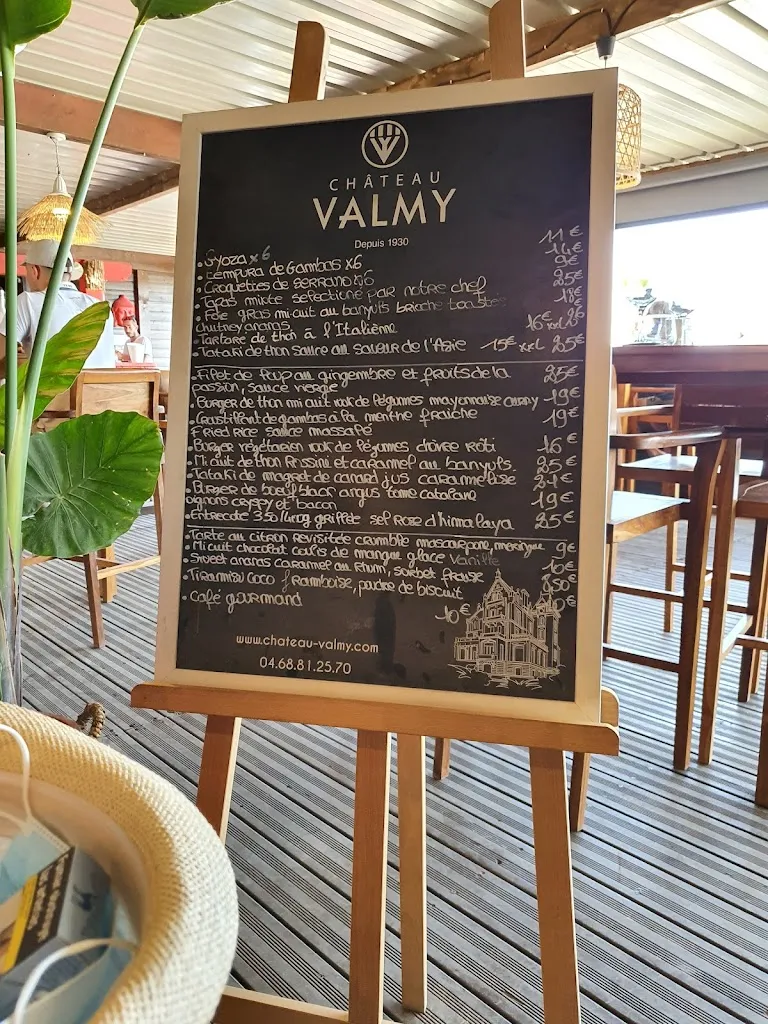 CHÂTEAU
VALMY
Depuis 1930
• Gyoza x 6 11€
• Tempura de Gambas x6 14€
• Croquettes de serrano x6 9€
• Tapas mixte selectioné par notre chef 25€
• Foie gras mi cuit au banyuls brioche toastée 18€
chutney ananas
• Tartare de thon à l'Italiène 16€ xxl 26
• Tataki de thon sauce au saveur de l'Asie 15€ xxl 25€
• Filet de loup au gingembre et fruits de la 25€
passion, sauce vierge
• Burger de thon mi cuit wok de légumes mayonnaise curry 19€
• Croustillant de gambas à la menthe fraiche 19€
Fried rice sauce massalé
• Burger végétarien wok de légumes chèvre rôti 16€
• Mi cuit de thon Rossini et caramel au banyuls 25€
• Tataki de magret de canard jus caramélisé 24€
• Burger de boeuf black angus tome catalane 19€
oignons cryspy et bacon
• Entrecote 350/400g grillée sel Rose d'himalaya 25€
• Tarte au citron revisitée crumble mascarpone, meringue 9€
• Mi cuit chocolat coulis de mangue glace Vanille 10€
• Sweet ananas caramel au rhum, sorbet fraise 8,50€
• Tiramisu Coco framboise, poudre de biscuit
• Café gourmand 10€
www.chateau-valmy.com
04.68.81.25.70